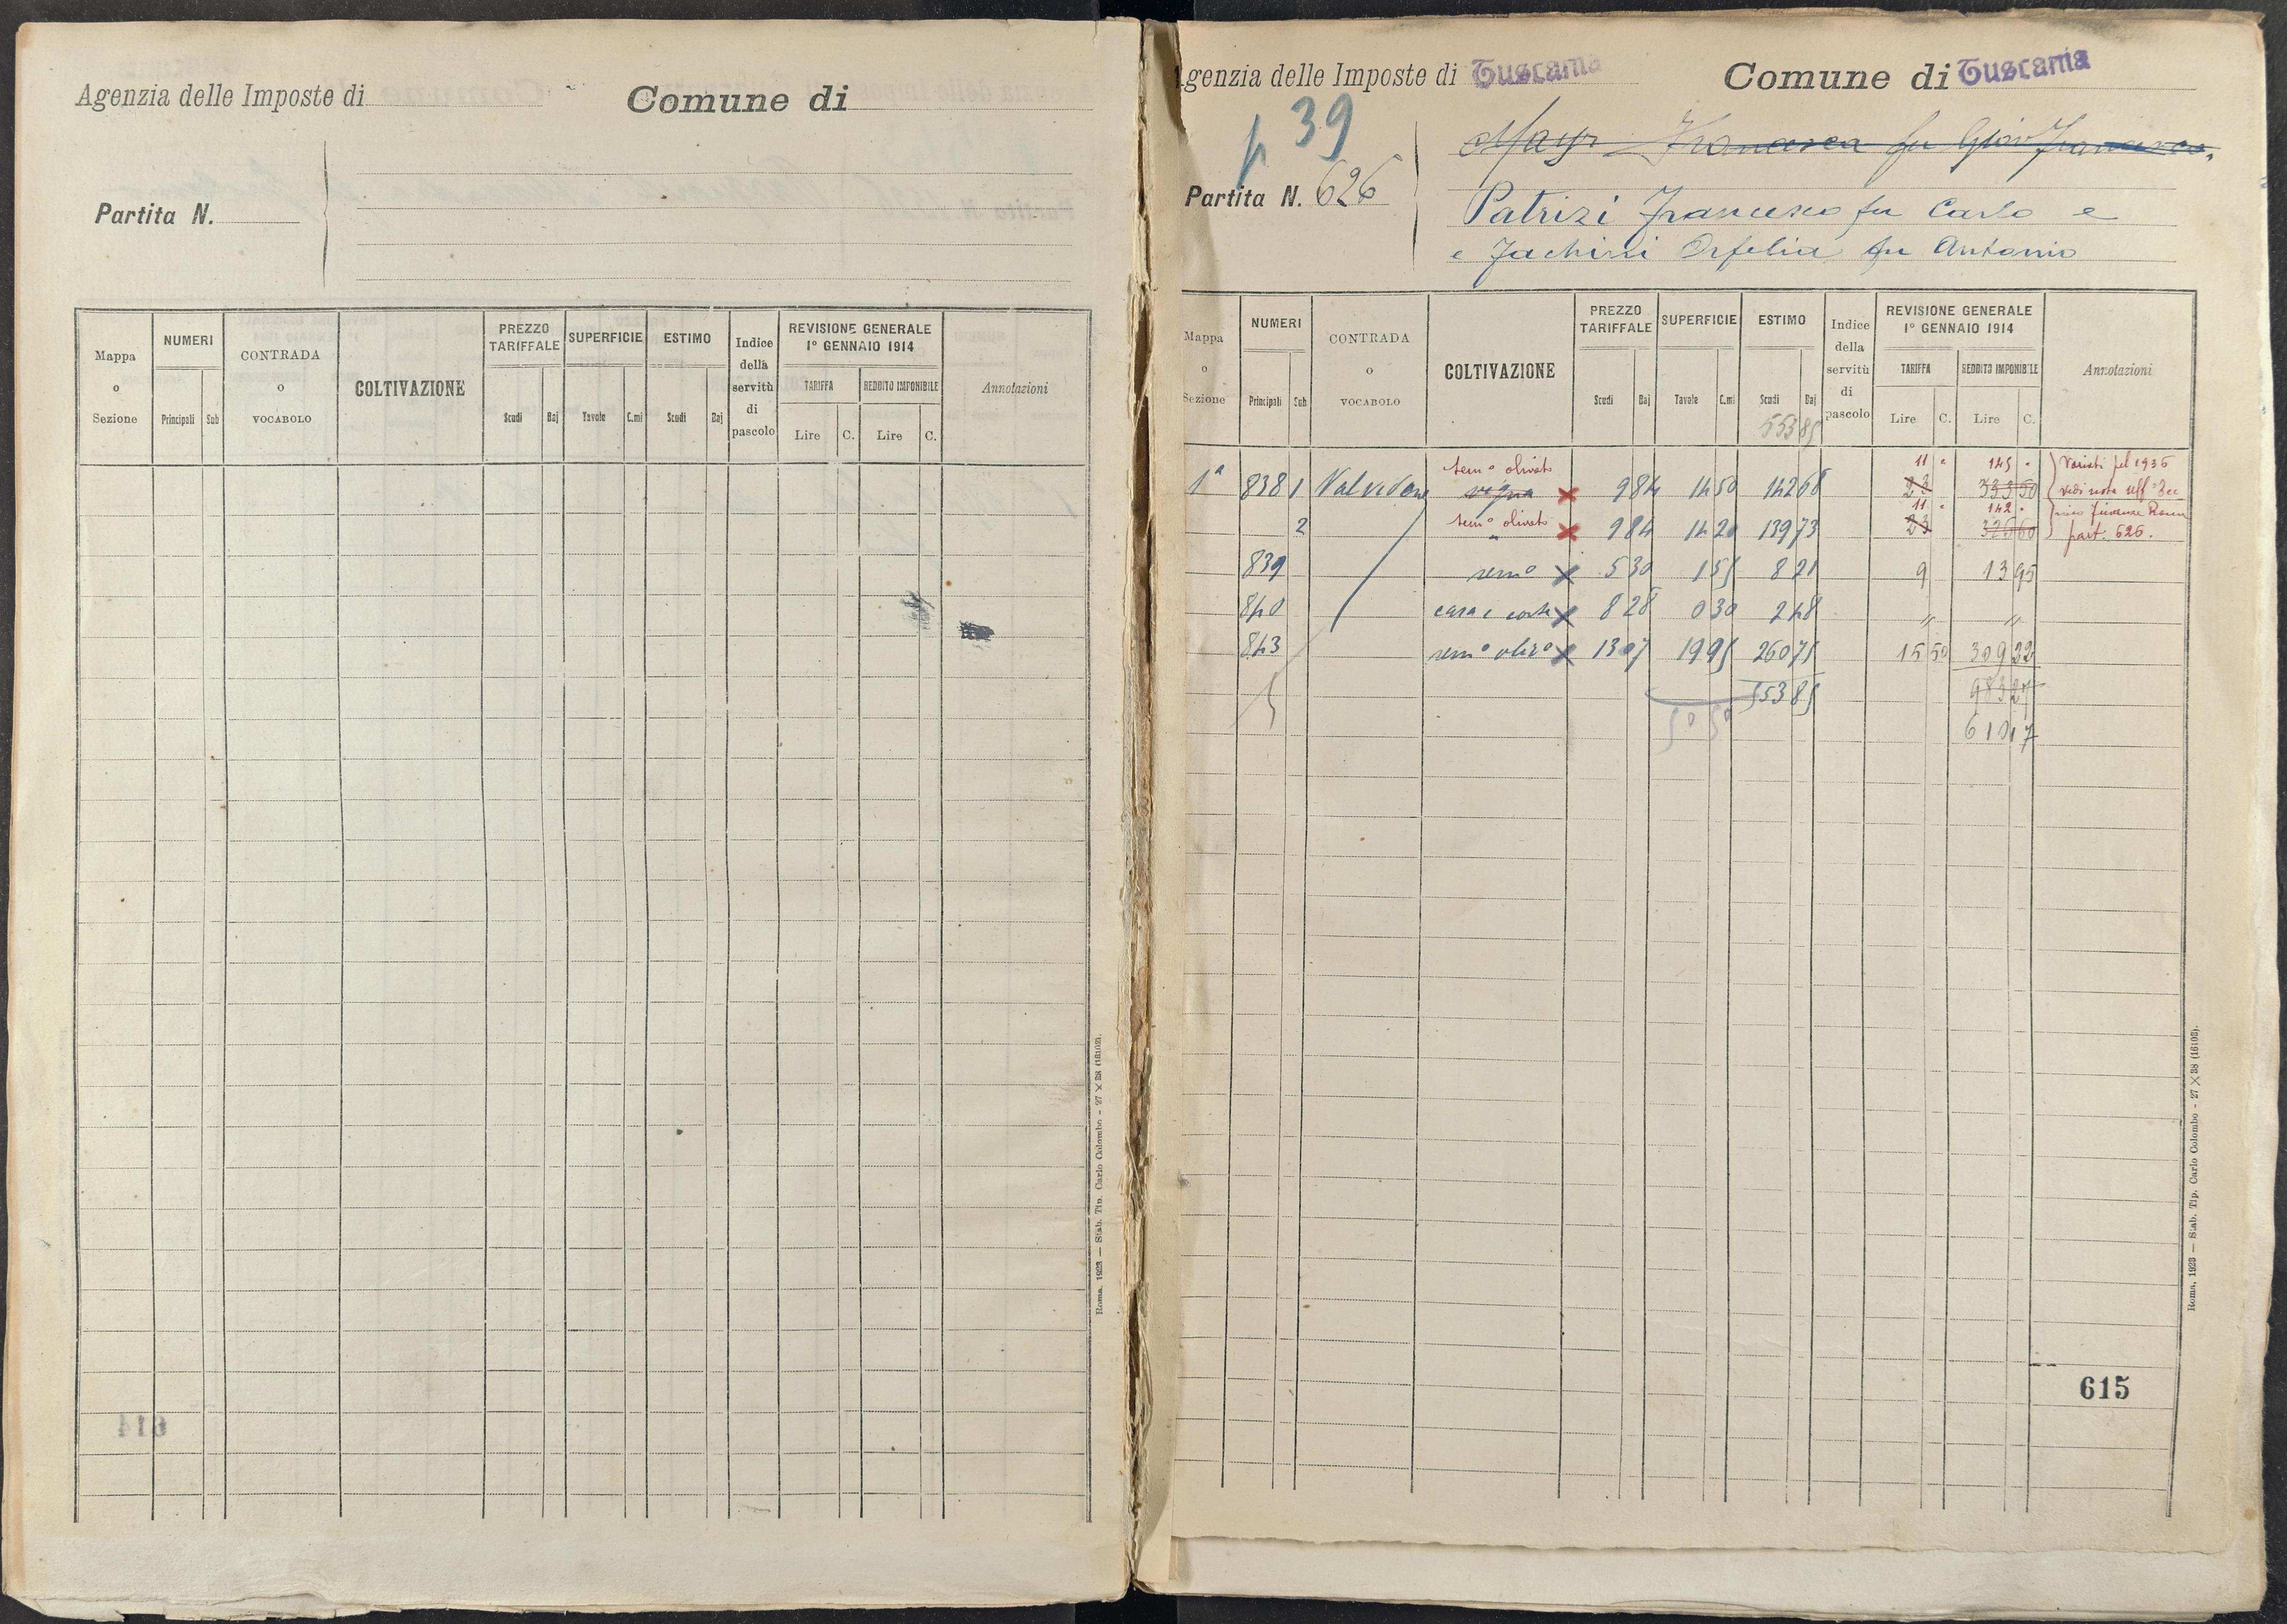 Agenzia delle Imposte di
Comune di
Partita N.
Mappa o Sezione
NUMERI
Principali Sub
CONTRADA O VOCABOLO
COLTIVAZIONE
PREZZO TARIFFALE
Scudi Baj
SUPERFICIE
Tavole C.mi
ESTIMO
Scudi Baj
Indice della servitù di pascolo
REVISIONE GENERALE 1° GENNAIO 1914
TARIFFA
Lire C.
REDDITO IMPONIBILE
Lire C.
Annotazioni
614
Roma, 1923 — Stab. Tip. Carlo Colombo - 27 X 38 (16102).
genzia delle Imposte di Tuscania
Comune di Tuscania
p 39
Francesca fu Giov Francesco.
Partita N. 626
Patrizi Francesco fu Carlo e
e Jachini Orfelia fu Antonio
Mappa o Sezione
NUMERI
Principali Sub
CONTRADA O VOCABOLO
COLTIVAZIONE
PREZZO TARIFFALE
Scudi Baj
SUPERFICIE
Tavole C.mi
ESTIMO
Scudi Baj
553 85
Indice della servitù di pascolo
REVISIONE GENERALE 1° GENNAIO 1914
TARIFFA
Lire C.
REDDITO IMPONIBILE
Lire C.
Annotazioni
sem° olivato 11 " 145 " Variati pel 1935
1ª 838 1 Valvidone vigna x 9 84 14 50 142 68 23 333 50 vedi nota
sem° olivato 11 " 142 "
2 " x 9 84 14 20 139 73 23 326 60 part. 626.
839 sem° x 5 30 1 55 8 21 9 13 95
840 casa e corte x 8 28 0 30 2 48 " "
843 sem° olivo x 13 07 19 95 260 75 15 50 309 22
5 553 85 983 27
50 50 610 17
615
Roma, 1923 — Stab. Tip. Carlo Colombo - 27 X 38 (16102).